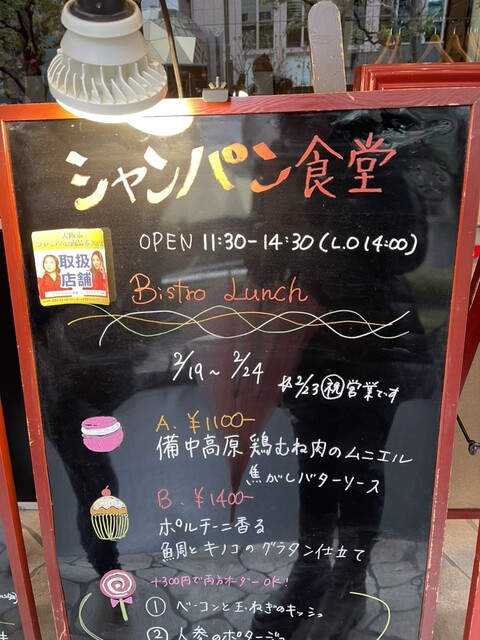 シャンパン食堂
OPEN 11:30-14:30 (L.O 14:00)
大阪市
取扱
店舗
Bistro Lunch
2/19~2/24
2/23㊗営業です
A. ¥1100-
備中高原 鶏むね肉のムニエル
焦がしバターソース
B. ¥1400-
ポルチーニ香る
魚周とキノコのグラタン仕立て
+300円で両方オーダーOK!
① ベーコンと玉ねぎのキッシュ
② 人参のポタージュ